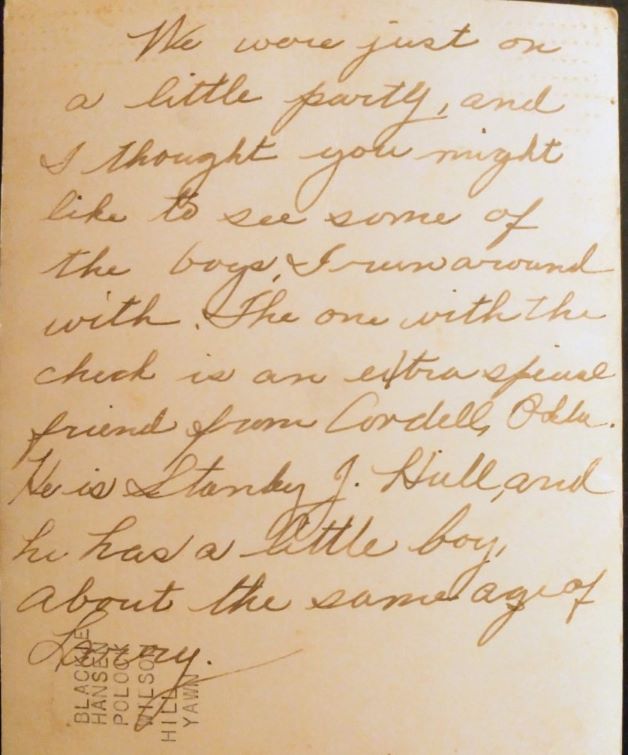 We were just on
a little party, and
I thought you might
like to see some of
the boys, I run around
with. The one with the
check is an extra special
friend from Cordell, Okla.
He is Stanley J. Hill, and
he has a little boy,
about the same age of
BLACKIE
HANSEN
POLOCK
WILSON
HILL
YAWN